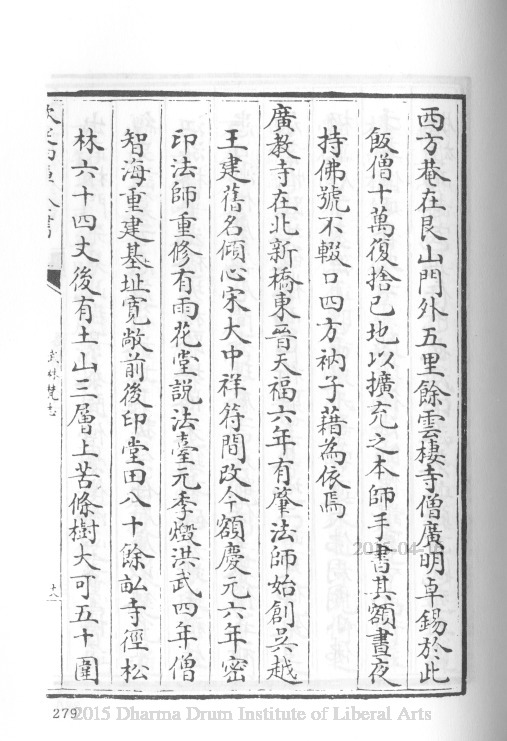 西方菴在艮山門外五里餘雲棲寺僧廣明卓錫於此
飯僧十萬復捨己地以擴充之本師手書其額晝夜
持佛號不輟口四方衲子藉為依焉
廣教寺在北新橋東晉天福六年有肇法師始創吳越
王建舊名傾心宋大中祥符間改今額慶元六年密
印法師重修有雨花堂説法臺元季燬洪武四年僧
智海重建基址寛敞前後印堂田八十餘畝寺徑松
林六十四丈後有土山三層上苦條樹大可五十圍
武林梵志
279
2015 Dharma Drum Institute of Liberal Arts